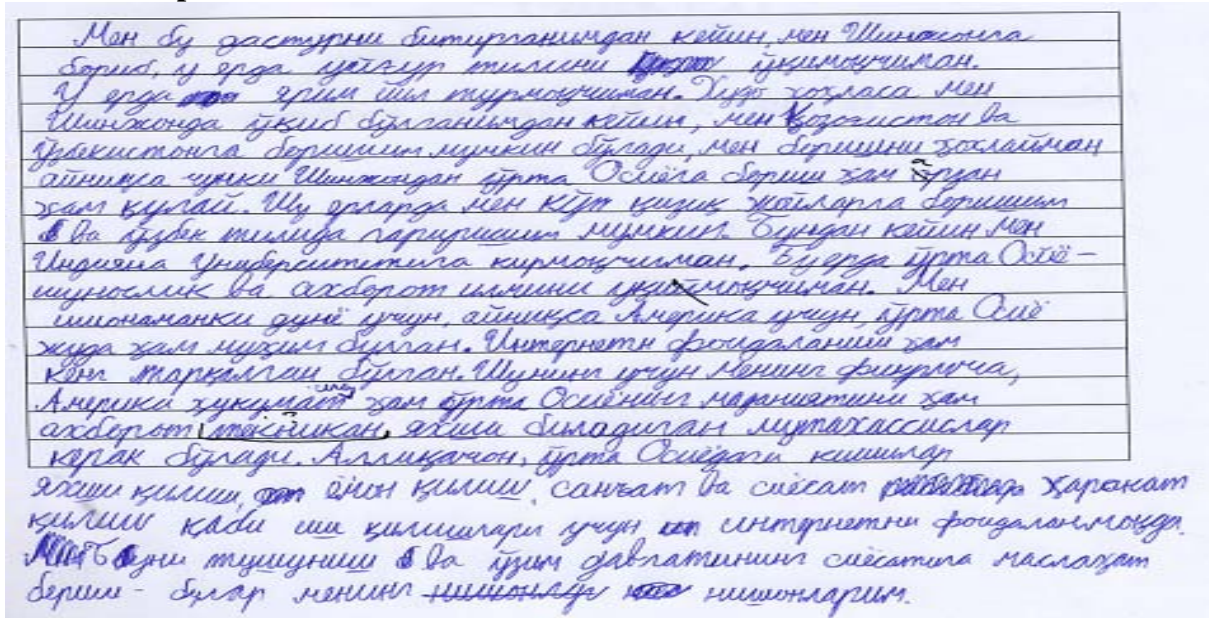 Мен бу дастурни битирганимдан кейин, мен Шинжонга
бориб, у ерда уйғур тилини ўқимоқчиман.
У ерда ярим йил турмоқчиман. Худо хоҳласа мен
Шинжонда ўқиб бўлганимдан кейин, мен Қозоғистон ва
Ўзбекистонга боришим мумкин бўлади, мен боришни хохлайман
айниқса чунки Шинжондан ўрта Осиёга бориш ҳам арзан
ҳам қулай. Шу ерларда мен кўп қизиқ жойларга боришим
ва ўзбек тилида гапиришим мумкин. Бундан кейин мен
Индияна Университетига кирмоқчиман. Бу ерда ўрта Осиё-
шунослик ва ахборот илмини ўқимоқчиман. Мен
ишонаманки дунё учун, айниқса Америка учун, ўрта Осиё
жуда ҳам муҳим бўлган. Интернетн фоидаланиш ҳам
кенг тарқалган бўлган. Шунинг учун менинг фикримча,
Америка ҳукумат ҳам ўрта Осиёнинг маданиятини ҳам
ахборот яхши биладиган мутахассислар
керак бўлади. Аллиқачон, ўрта Осиёдаги кишилар
яхши қилиш, ёмон қилиш, санъат ва сиёсат ҳаракат
қилиш каби иш қилишлари учун интернетни фоидаланмоқда.
Буни тушуниш ва ўзим давлатининг сиёсатига маслаҳат
бериш - булар менинг нишонларим.